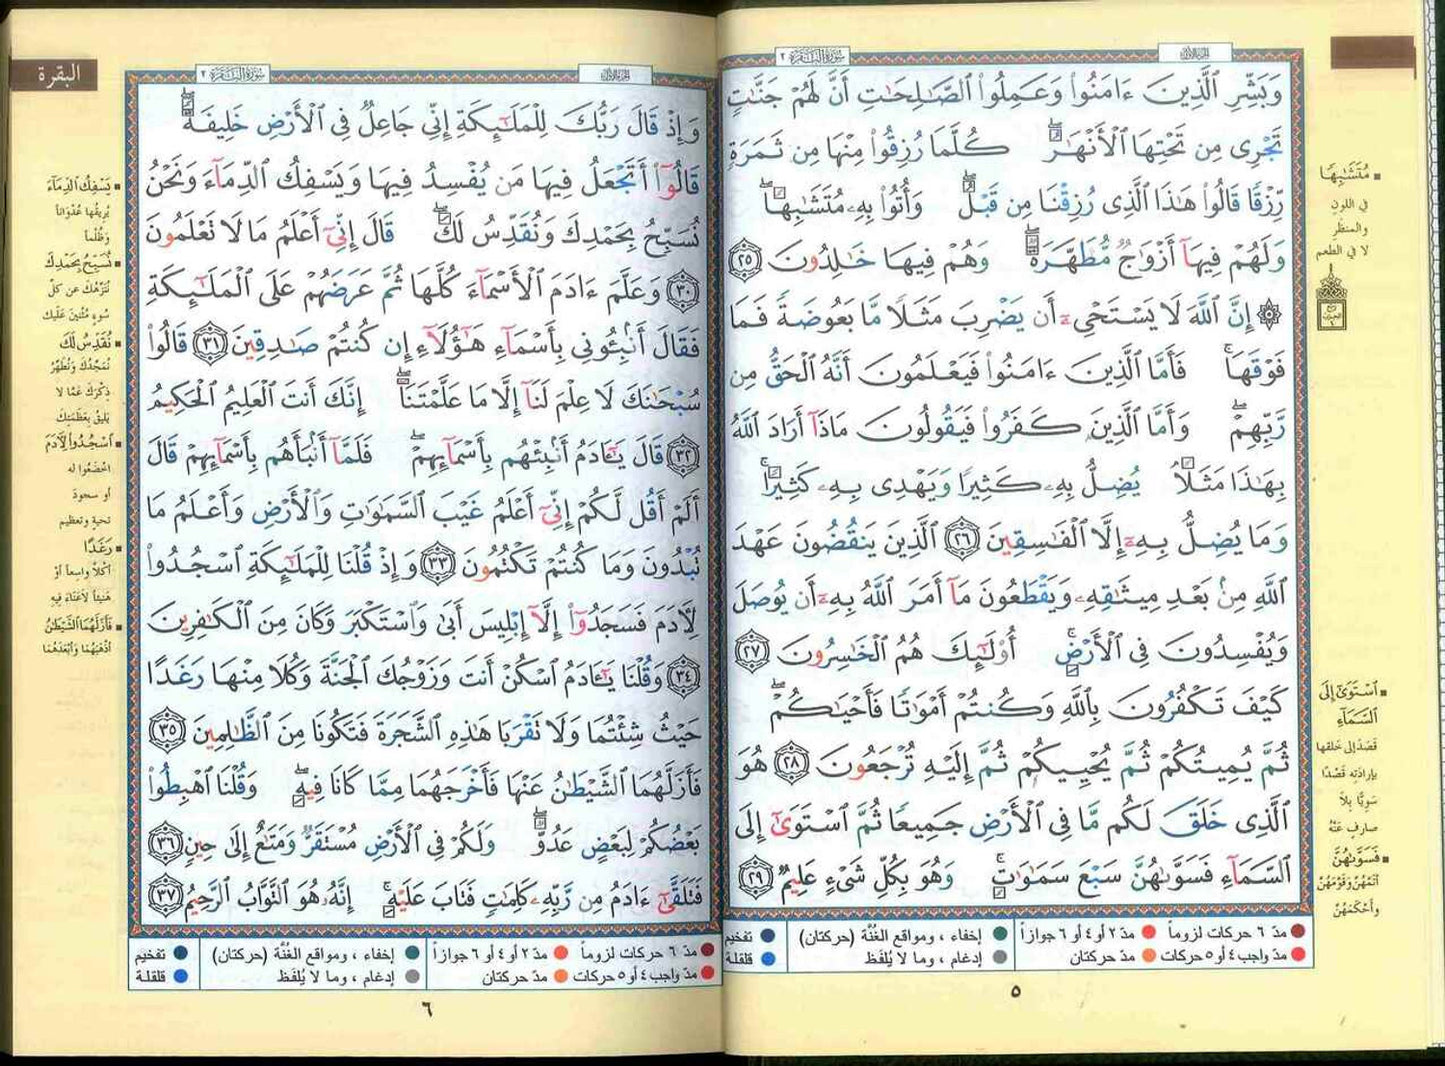 سورة البقرة ٢
الجزء الأول
وَبَشِّرِ ٱلَّذِينَ ءَامَنُوا۟ وَعَمِلُوا۟ ٱلصَّـٰلِحَـٰتِ أَنَّ لَهُمْ جَنَّـٰتٍ
تَجْرِى مِن تَحْتِهَا ٱلْأَنْهَـٰرُ ۖ كُلَّمَا رُزِقُوا۟ مِنْهَا مِن ثَمَرَةٍ
رِّزْقًا قَالُوا۟ هَـٰذَا ٱلَّذِى رُزِقْنَا مِن قَبْلُ ۖ وَأُتُوا۟ بِهِۦ مُتَشَـٰبِهًا ۖ
وَلَهُمْ فِيهَآ أَزْوَٰجٌ مُّطَهَّرَةٌ ۖ وَهُمْ فِيهَا خَـٰلِدُونَ ٢٥
۞ إِنَّ ٱللَّهَ لَا يَسْتَحْىِۦٓ أَن يَضْرِبَ مَثَلًا مَّا بَعُوضَةً فَمَا
فَوْقَهَا ۚ فَأَمَّا ٱلَّذِينَ ءَامَنُوا۟ فَيَعْلَمُونَ أَنَّهُ ٱلْحَقُّ مِن
رَّبِّهِمْ ۖ وَأَمَّا ٱلَّذِينَ كَفَرُوا۟ فَيَقُولُونَ مَاذَآ أَرَادَ ٱللَّهُ
بِهَـٰذَا مَثَلًا ۘ يُضِلُّ بِهِۦ كَثِيرًا وَيَهْدِى بِهِۦ كَثِيرًا ۚ
وَمَا يُضِلُّ بِهِۦٓ إِلَّا ٱلْفَـٰسِقِينَ ٢٦ ٱلَّذِينَ يَنقُضُونَ عَهْدَ
ٱللَّهِ مِنۢ بَعْدِ مِيثَـٰقِهِۦ وَيَقْطَعُونَ مَآ أَمَرَ ٱللَّهُ بِهِۦٓ أَن يُوصَلَ
وَيُفْسِدُونَ فِى ٱلْأَرْضِ ۚ أُو۟لَـٰٓئِكَ هُمُ ٱلْخَـٰسِرُونَ ٢٧
كَيْفَ تَكْفُرُونَ بِٱللَّهِ وَكُنتُمْ أَمْوَٰتًا فَأَحْيَـٰكُمْ ۖ
ثُمَّ يُمِيتُكُمْ ثُمَّ يُحْيِيكُمْ ثُمَّ إِلَيْهِ تُرْجَعُونَ ٢٨ هُوَ
ٱلَّذِى خَلَقَ لَكُم مَّا فِى ٱلْأَرْضِ جَمِيعًا ثُمَّ ٱسْتَوَىٰٓ إِلَى
ٱلسَّمَآءِ فَسَوَّىٰهُنَّ سَبْعَ سَمَـٰوَٰتٍ ۚ وَهُوَ بِكُلِّ شَىْءٍ عَلِيمٌ ٢٩
مُتَشَـٰبِهًا
في اللونِ
والمنظر
لا في الطعم
ٱسْتَوَىٰٓ إِلَى
ٱلسَّمَآءِ
قَصَدَ إلى خلقها
بإرادته قَصْدًا
سَوِيًّا بِلا
صارِفٍ عَنْهُ
فَسَوَّىٰهُنَّ
أتَمَّهُنَّ وَقَوَّمَهُنَّ
وأَحْكَمَهُنَّ
مدّ ٦ حركات لزوماً مدّ ٢ أو ٤ أو ٦ جوازاً إخفاء ، ومواقع الغُنَّة (حركتان) تفخيم
مدّ واجب ٤ أو ٥ حركات مدّ حركتان إدغام ، وما لا يُلفَظ قلقلة
٥
البقرة
سورة البقرة ٢
الجزء الأول
وَإِذْ قَالَ رَبُّكَ لِلْمَلَـٰٓئِكَةِ إِنِّى جَاعِلٌ فِى ٱلْأَرْضِ خَلِيفَةً ۖ
قَالُوٓا۟ أَتَجْعَلُ فِيهَا مَن يُفْسِدُ فِيهَا وَيَسْفِكُ ٱلدِّمَآءَ وَنَحْنُ
نُسَبِّحُ بِحَمْدِكَ وَنُقَدِّسُ لَكَ ۖ قَالَ إِنِّىٓ أَعْلَمُ مَا لَا تَعْلَمُونَ
٣٠ وَعَلَّمَ ءَادَمَ ٱلْأَسْمَآءَ كُلَّهَا ثُمَّ عَرَضَهُمْ عَلَى ٱلْمَلَـٰٓئِكَةِ
فَقَالَ أَنۢبِـُٔونِى بِأَسْمَآءِ هَـٰٓؤُلَآءِ إِن كُنتُمْ صَـٰدِقِينَ ٣١ قَالُوا۟
سُبْحَـٰنَكَ لَا عِلْمَ لَنَآ إِلَّا مَا عَلَّمْتَنَآ ۖ إِنَّكَ أَنتَ ٱلْعَلِيمُ ٱلْحَكِيمُ
٣٢ قَالَ يَـٰٓـَٔادَمُ أَنۢبِئْهُم بِأَسْمَآئِهِمْ ۖ فَلَمَّآ أَنۢبَأَهُم بِأَسْمَآئِهِمْ قَالَ
أَلَمْ أَقُل لَّكُمْ إِنِّىٓ أَعْلَمُ غَيْبَ ٱلسَّمَـٰوَٰتِ وَٱلْأَرْضِ وَأَعْلَمُ مَا
تُبْدُونَ وَمَا كُنتُمْ تَكْتُمُونَ ٣٣ وَإِذْ قُلْنَا لِلْمَلَـٰٓئِكَةِ ٱسْجُدُوا۟
لِـَٔادَمَ فَسَجَدُوٓا۟ إِلَّآ إِبْلِيسَ أَبَىٰ وَٱسْتَكْبَرَ وَكَانَ مِنَ ٱلْكَـٰفِرِينَ
٣٤ وَقُلْنَا يَـٰٓـَٔادَمُ ٱسْكُنْ أَنتَ وَزَوْجُكَ ٱلْجَنَّةَ وَكُلَا مِنْهَا رَغَدًا
حَيْثُ شِئْتُمَا وَلَا تَقْرَبَا هَـٰذِهِ ٱلشَّجَرَةَ فَتَكُونَا مِنَ ٱلظَّـٰلِمِينَ ٣٥
فَأَزَلَّهُمَا ٱلشَّيْطَـٰنُ عَنْهَا فَأَخْرَجَهُمَا مِمَّا كَانَا فِيهِ ۖ وَقُلْنَا ٱهْبِطُوا۟
بَعْضُكُمْ لِبَعْضٍ عَدُوٌّ ۖ وَلَكُمْ فِى ٱلْأَرْضِ مُسْتَقَرٌّ وَمَتَـٰعٌ إِلَىٰ حِينٍ ٣٦
فَتَلَقَّىٰٓ ءَادَمُ مِن رَّبِّهِۦ كَلِمَـٰتٍ فَتَابَ عَلَيْهِ ۚ إِنَّهُۥ هُوَ ٱلتَّوَّابُ ٱلرَّحِيمُ ٣٧
يَسْفِكُ ٱلدِّمَآءَ
يُريقُها عُدْوَاناً
وَظُلْماً
نُسَبِّحُ بِحَمْدِكَ
نُنَزِّهُكَ عن كلِّ
سُوءٍ مُثْنِينَ عَلَيك
نُقَدِّسُ لَكَ
نُمَجِّدُكَ وَنُطَهِّرُ
ذِكْرَكَ عَمَّا لا
يليقُ بِعَظَمَتِكَ
ٱسْجُدُوا۟ لِـَٔادَمَ
اخْضَعُوا له
أو سجودَ
تحيةٍ وتعظيم
رَغَدًا
أكْلاً واسِعاً أوْ
هَنيئاً لاَ عَنَاءَ فِيهِ
فَأَزَلَّهُمَا ٱلشَّيْطَـٰنُ
أذْهَبَهُمَا وأبْعَدَهُمَا
مدّ ٦ حركات لزوماً مدّ ٢ أو ٤ أو ٦ جوازاً إخفاء ، ومواقع الغُنَّة (حركتان) تفخيم
مدّ واجب ٤ أو ٥ حركات مدّ حركتان إدغام ، وما لا يُلفَظ قلقلة
٦